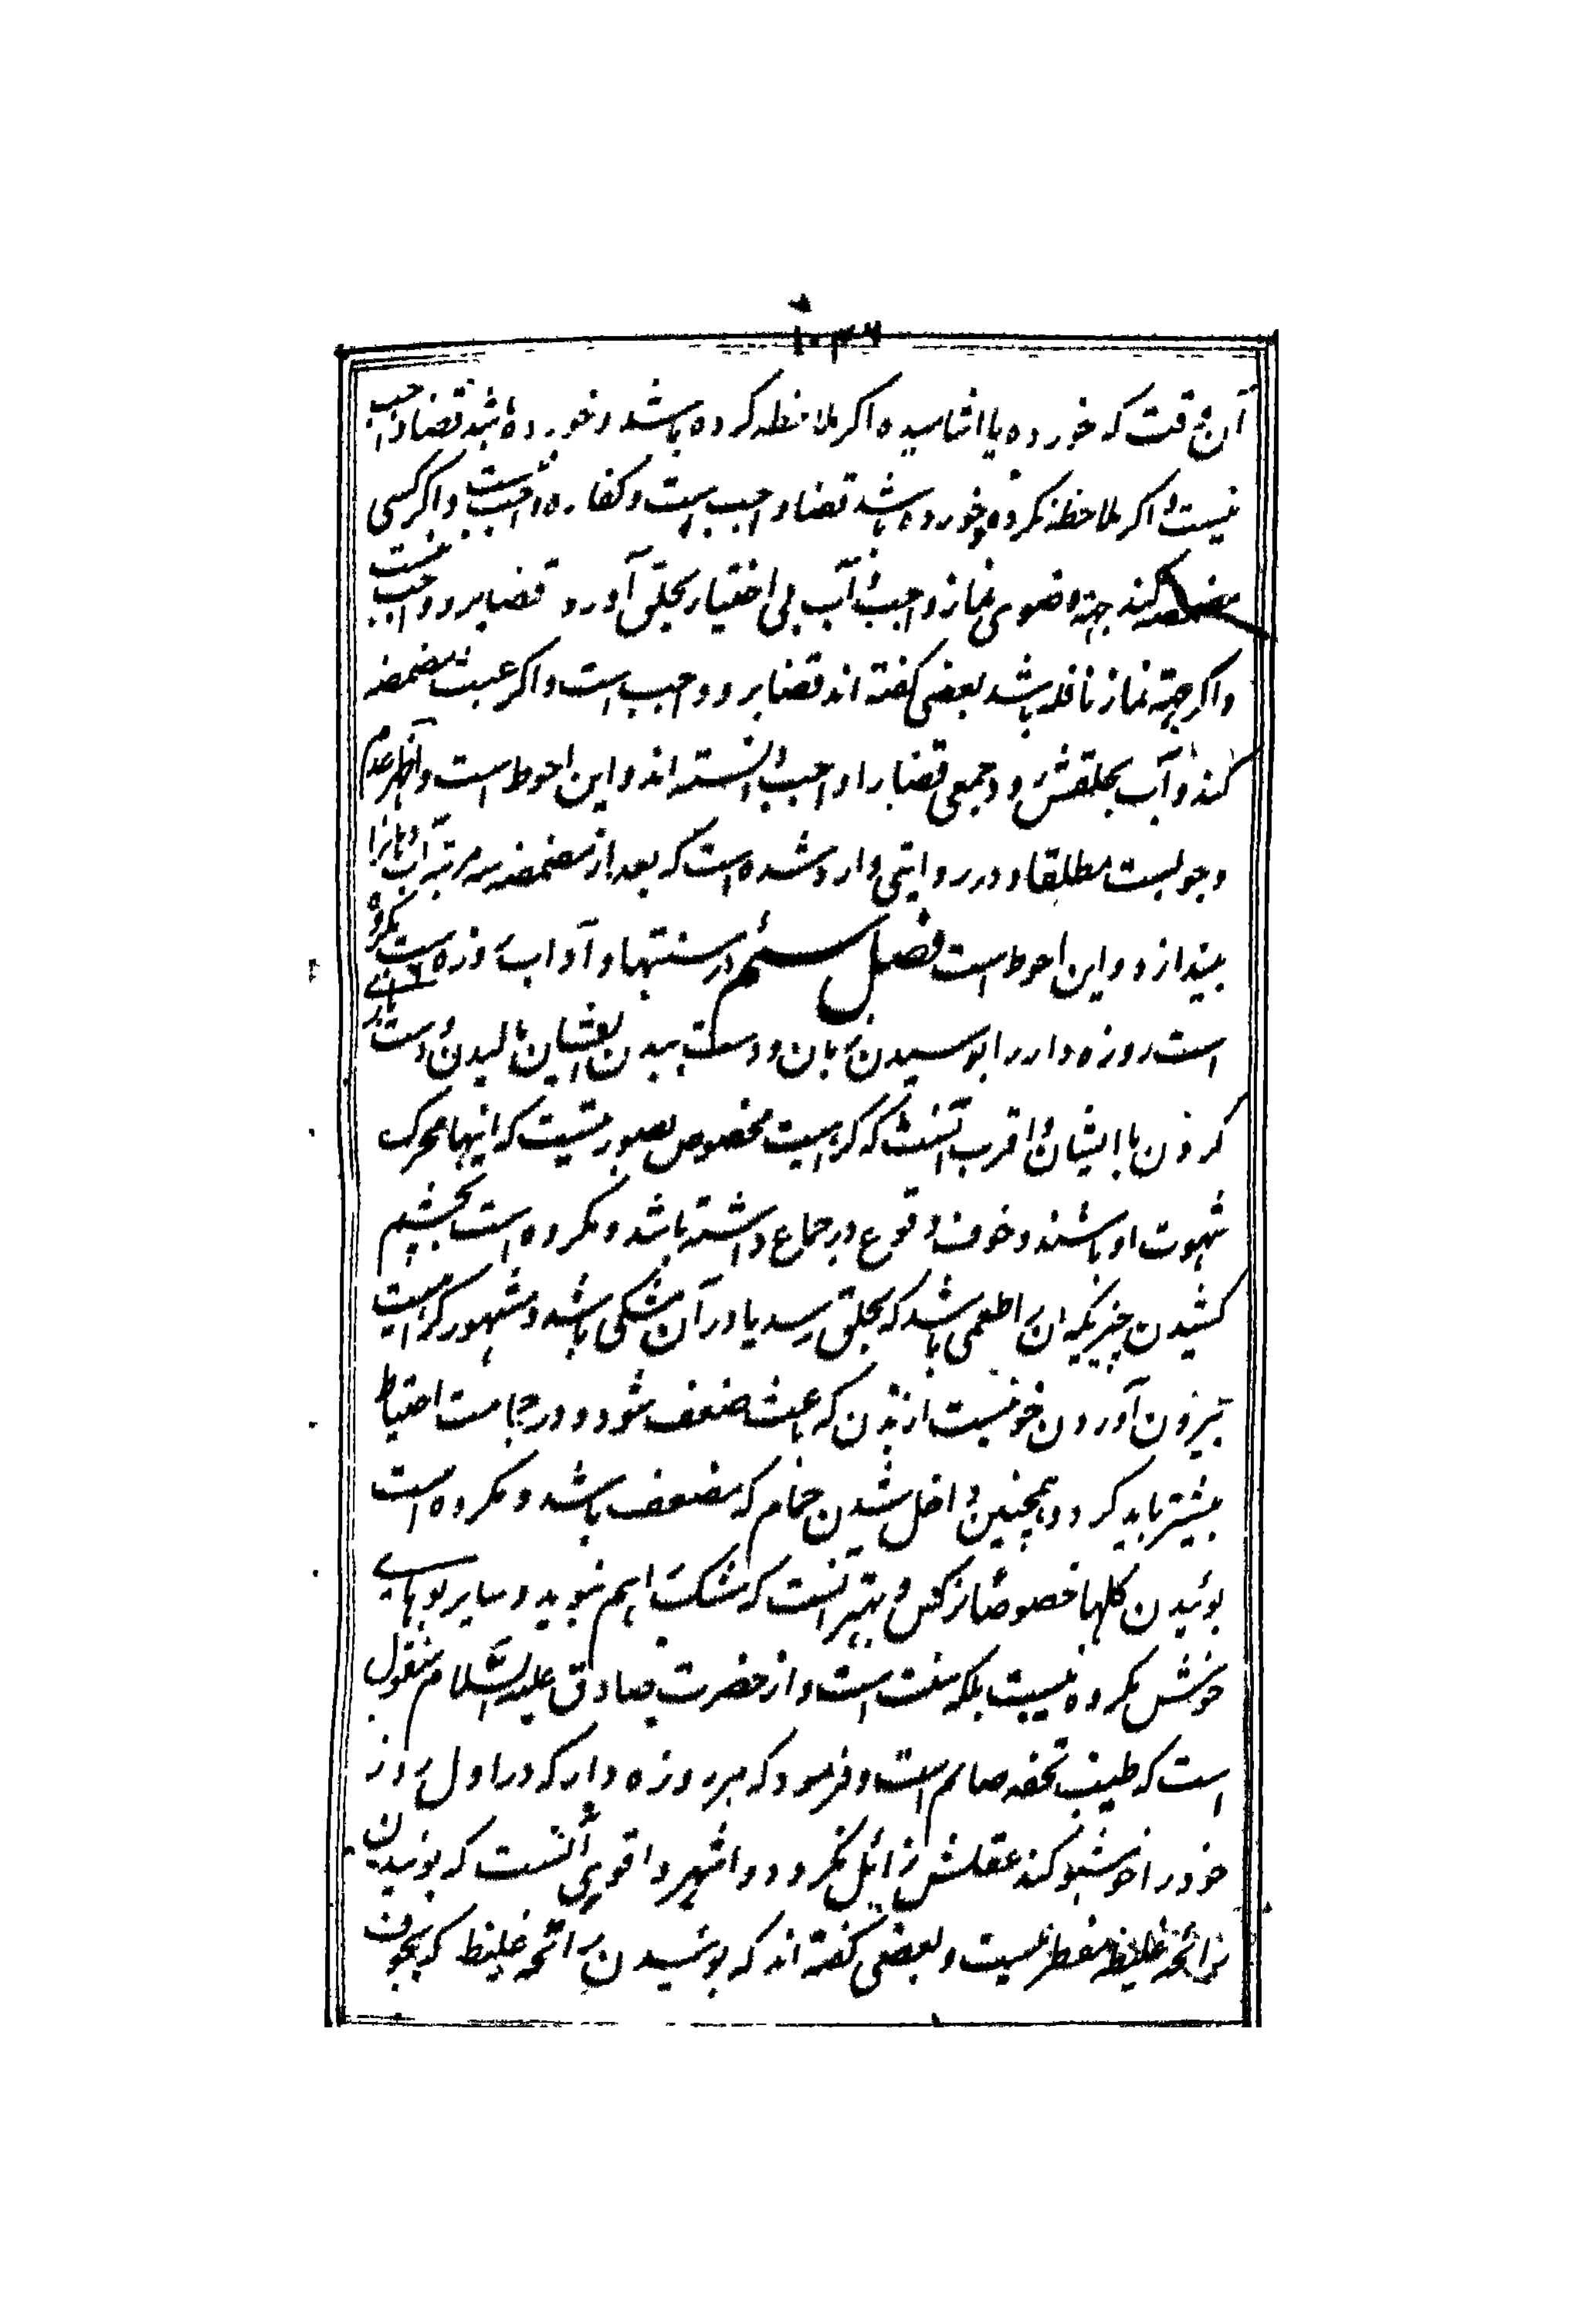 ۱۰۳۶
آن وقت که خورده یا اشامیده اکر ملاحظه کرده باشد و خورده باشد قضا واجب
نیست و اکر ملاحظه نکرده و خورده باشد قضا واجب است و کفاره واجب نیست و اکر کسی
مضمضه کند جهة وضوی نماز واجب و آب بی اختیار بحلق آورد قضا برو واجب نیست
واکر جهة نماز نافله باشد بعضی کفته اند قضا برو واجب است و اکر عبث مضمضه
کند و آب بحلقش رود جمعی قضا را واجب دانسته اند و این احوط است و اظهر عدم
وجوبست مطلقا و در روایتی وارد شده است که بعد از مضمضه سه مرتبه آب دهانرا
بیندازد و این احوط است فصل سئم در سنتها و آداب روزه است مکروه
است روزه دار را بوسیدن زنان و دست ببدن ایشان مالیدن و بازی
کردن با ایشان و اقرب آنست که کراهیت مخصوص بصورتیست که اینها محرک
شهوت او باشند و خوف وقوع در جماع داشته باشد و مکروه است بچشم
کشیدن چیزیکه ان را طعمی باشد که بحلق رسد یا در آن مشکی باشد و مشهور کراهیت
بیرون آوردن خونیست از بدن که باعث ضعف شود و در حجامت احتیاط
بیشتر باید کرد و همچنین داخل شدن حمام که مضعف باشد و مکروه است
بوئیدن کلها خصوصا نرکس و بهتر آنست که مشک را هم نبوید و سایر بوهای
خوش مکروه نیست بلکه سنت است و از حضرت صادق علیه السلام منقول
است که طیب تحفه صائم است و فرمود که هر روزه دار که در اول روز
خود را خوشبو کند عقلش زائل نکردد و اشهر و اقوی آنست که بوئیدن
رائحه غلیظ مفطر نیست و بعضی کفته اند که بوئیدن رائحه غلیظ که بجوف